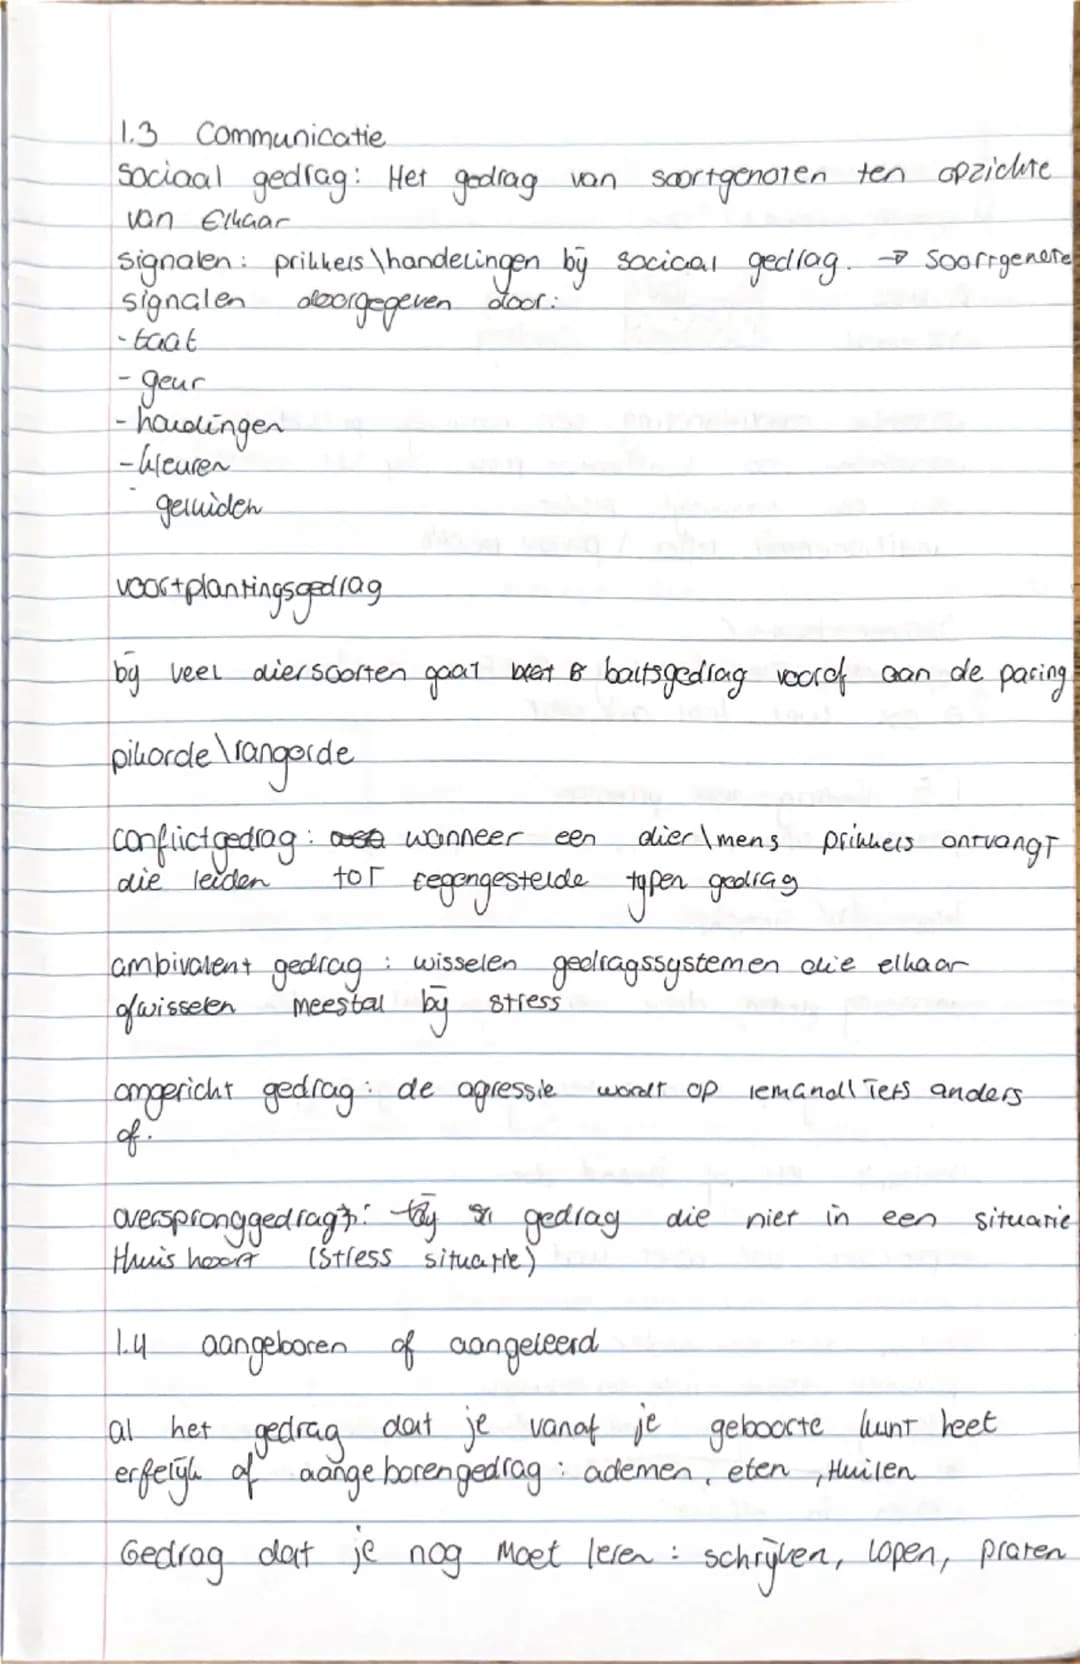 1.3 Communicatie
sociaal gedrag: Het gedrag van soortgenoten ten opzichte
van Elkaar
signalen: prikkels \ handelingen bij sociaal gedrag. → soortgenote
signalen doorgegeven door:
- taal
- geur
- houdingen
- kleuren
- geluiden
voortplantingsgedrag
bij veel diersoorten gaat baltsgedrag vooraf aan de paring
pikorde \ rangorde
conflictgedrag: wanneer een dier \ mens prikkels ontvangt
die leiden tot tegengestelde typen gedrag
ambivalent gedrag: wisselen gedragssystemen die elkaar
afwisselen meestal bij stress
omgericht gedrag: de agressie wordt op iemand \ iets anders
af.
overspronggedrag: gedrag die niet in een situatie
Thuis hoort (stress situatie)
1.4 aangeboren of aangeleerd
al het gedrag dat je vanaf je geboorte kunt heet
erfelijk of aangeborengedrag: ademen, eten, Huilen
Gedrag dat je nog moet leren: schrijven, lopen, praten